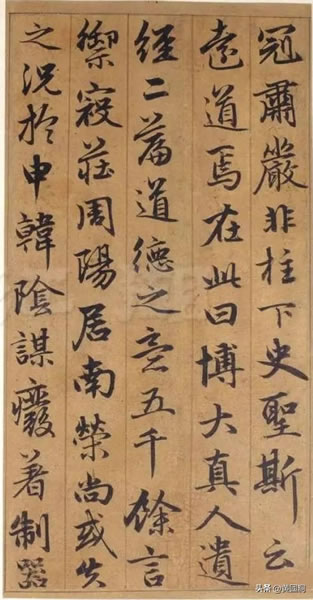 冠肅嚴非柱下史聖斯云
遠道焉在此曰博大真人遺
經二篇道德之意五千餘言
禦寇莊周陽居南榮尚或失
之況於申韓陰謀癈著制器
头条